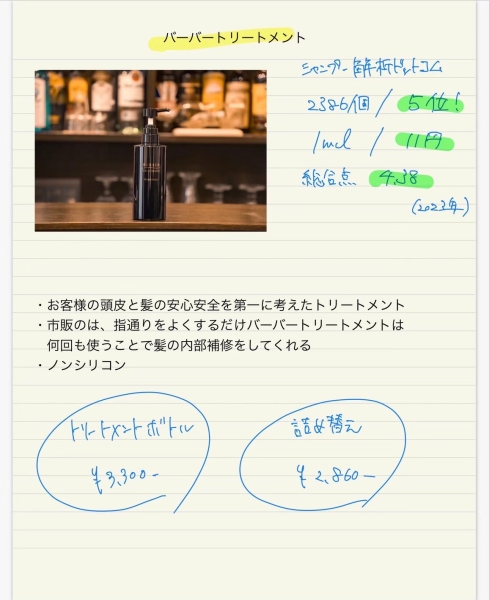 バーバートリートメント
シャンプー解析ドットコム
2386個 / 5位!
1ml / 11円
総合点 4.38
(2023年)
・お客様の頭皮と髪の安心安全を第一に考えたトリートメント
・市販のは、指通りをよくするだけバーバートリートメントは
何回も使うことで髪の内部補修をしてくれる
・ノンシリコン
トリートメントボトル
¥3,300-
詰め替え
¥2,860-